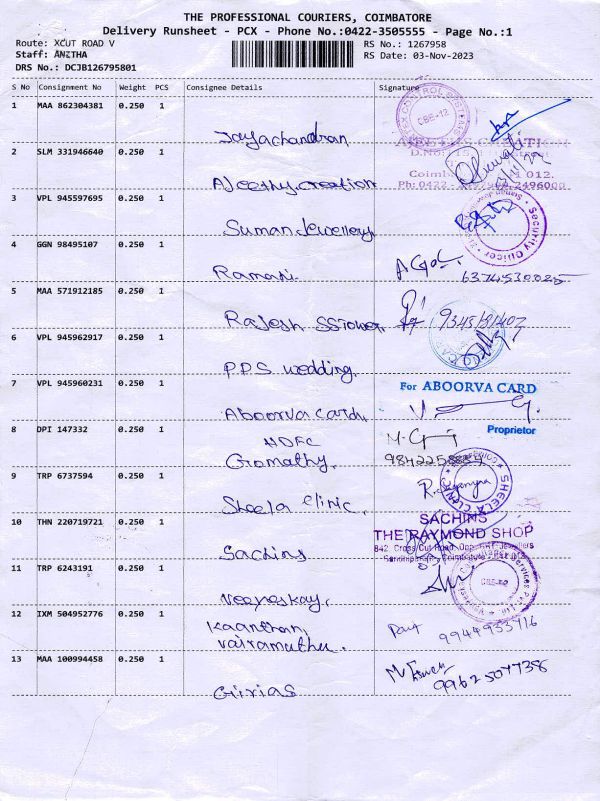 THE PROFESSIONAL COURIERS, COIMBATORE
Delivery Runsheet - PCX - Phone No.:0422-3505555 - Page No.:1
Route: XCUT ROAD V
RS No.: 1267958
Staff: ANITHA
RS Date: 03-Nov-2023
DRS No.: DCJB126795801
S No Consignment No Weight PCS Consignee Details Signature
1 MAA 862304381 0.250 1
Jayachandran
CBE-12
2 SLM 331946640 0.250 1
CREATION
D.No.
Coimb 012.
Ph: 0422 - 2496000
Ajeethy creation
3 VPL 945597695 0.250 1
Suman Jewellery
Security Officer
4 GGN 98495107 0.250 1
Ramani
6374530025
5 MAA 571912185 0.250 1
Rajesh SS Tower
6 VPL 945962917 0.250 1
P.P.S wedding.
7 VPL 945960231 0.250 1
For ABOORVA CARD
Aboorva card.
Proprietor
8 DPI 147332 0.250 1
HDFC
Gomathy.
9 TRP 6737594 0.250 1
Sheela clinic.
SHEELA CLINIC
10 THN 220719721 0.250 1
SACHINS
THE RAYMOND SHOP
842 Cross Cut Road, Opp. Jewellers
Coimbatore
Sachins
11 TRP 6243191 0.250 1
Veeneskay.
12 IXM 504952776 0.250 1
Kaanthan,
vairamuthu.
9944953716
13 MAA 100994458 0.250 1
9962507738
Girias